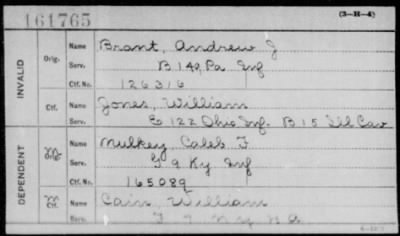 161765
(3-H-4)
INVALID
Orig. Name Brant, Andrew J
Serv. B 149 Pa Inf
Ctf. No. 126316
Ctf. Name Jones, William
E 122 Ohio Inf. B 15 Ill Cav
DEPENDENT
M Orig. Name Mulkey, Caleb F
Serv. G 9 Ky Inf
Ctf. No. 165089
M Ctf. Name Cain, William